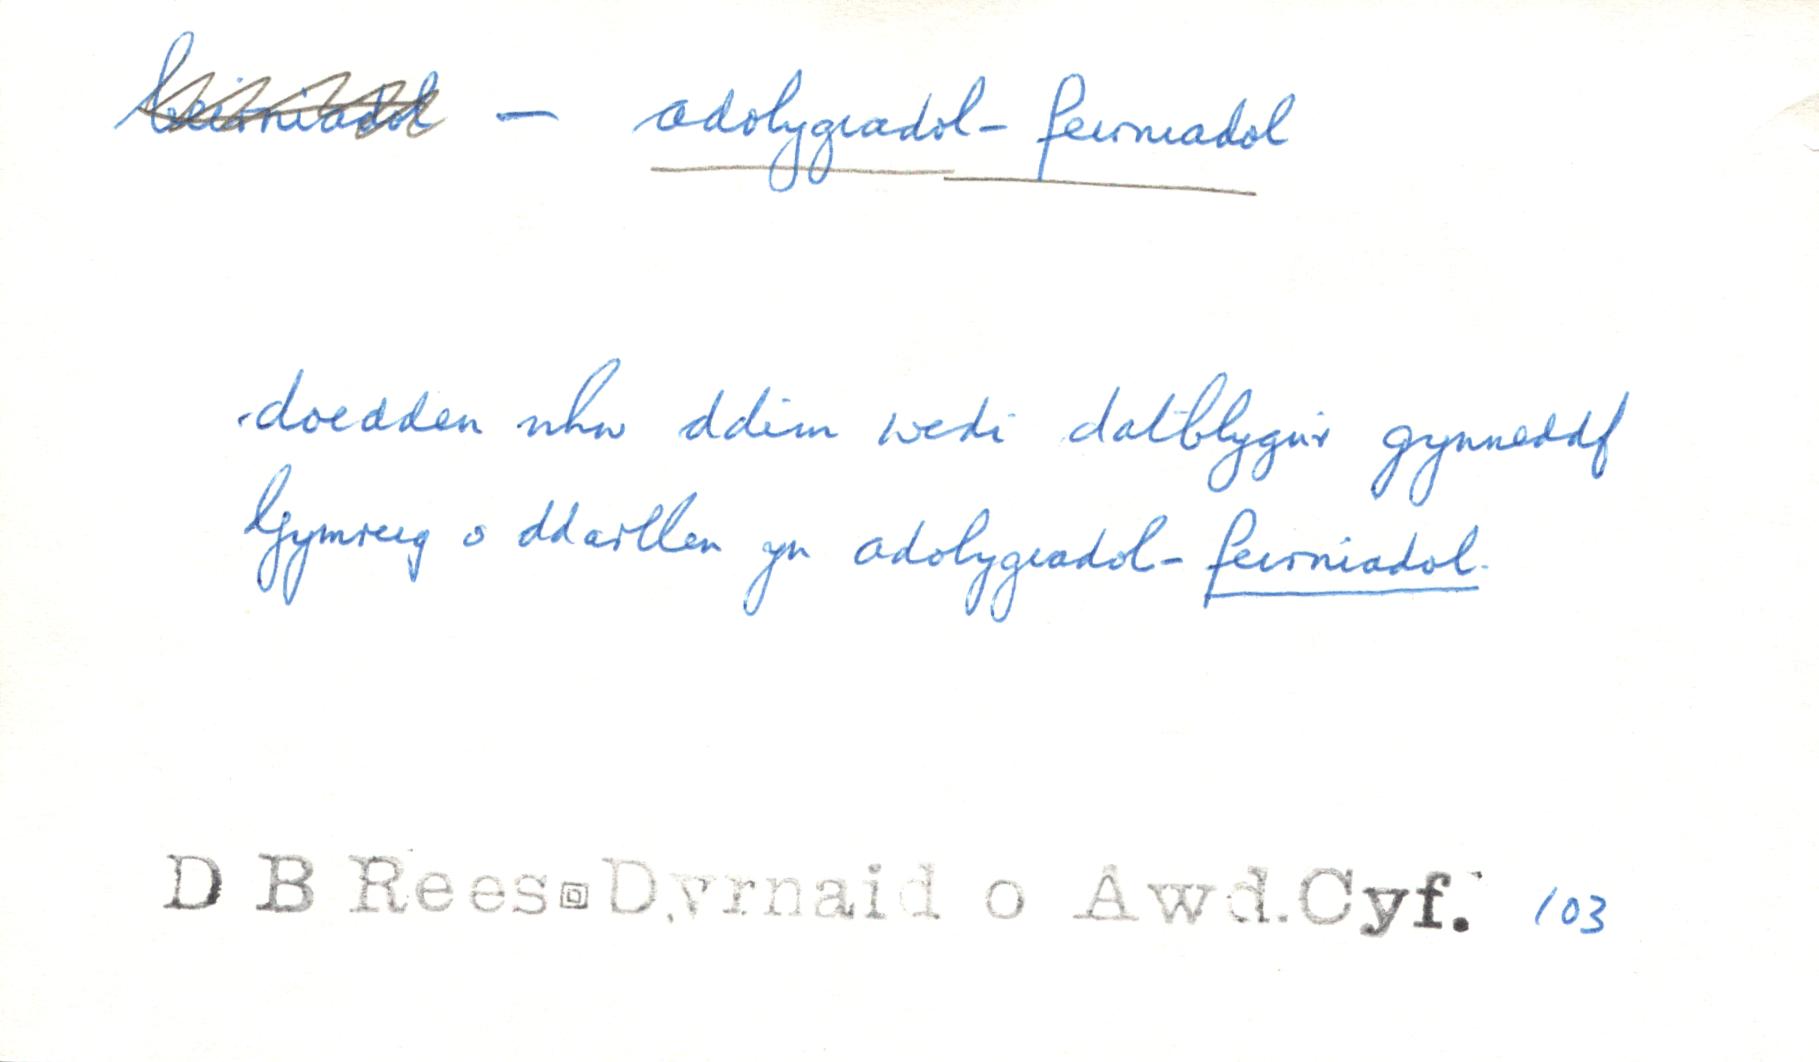 beirniadol — adolygiadol-feirniadol
doedden nhw ddim wedi datblygu'r gynneddf
Gymreig o ddarllen yn adolygiadol-feirniadol.
D B Rees Dyrnaid o Awd.Cyf. 103